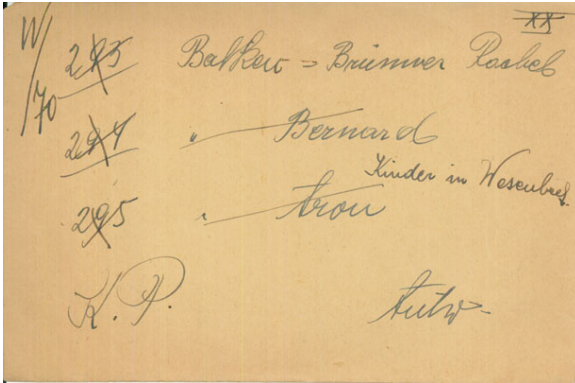 XX
W/70
293 Balkew = Brümmer Rashel
294 " Bernard
Kinder in Wesenbeek.
295 " Aron
K. P.
Antw-